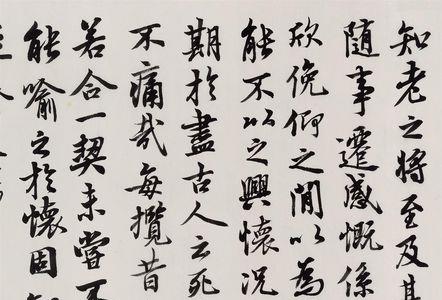 知老之將至及其
隨事遷感慨係
欣俛仰之間以為
能不以之興懷況
期於盡古人云死
不痛哉每攬昔
若合一契未嘗不
能喻之於懷固知